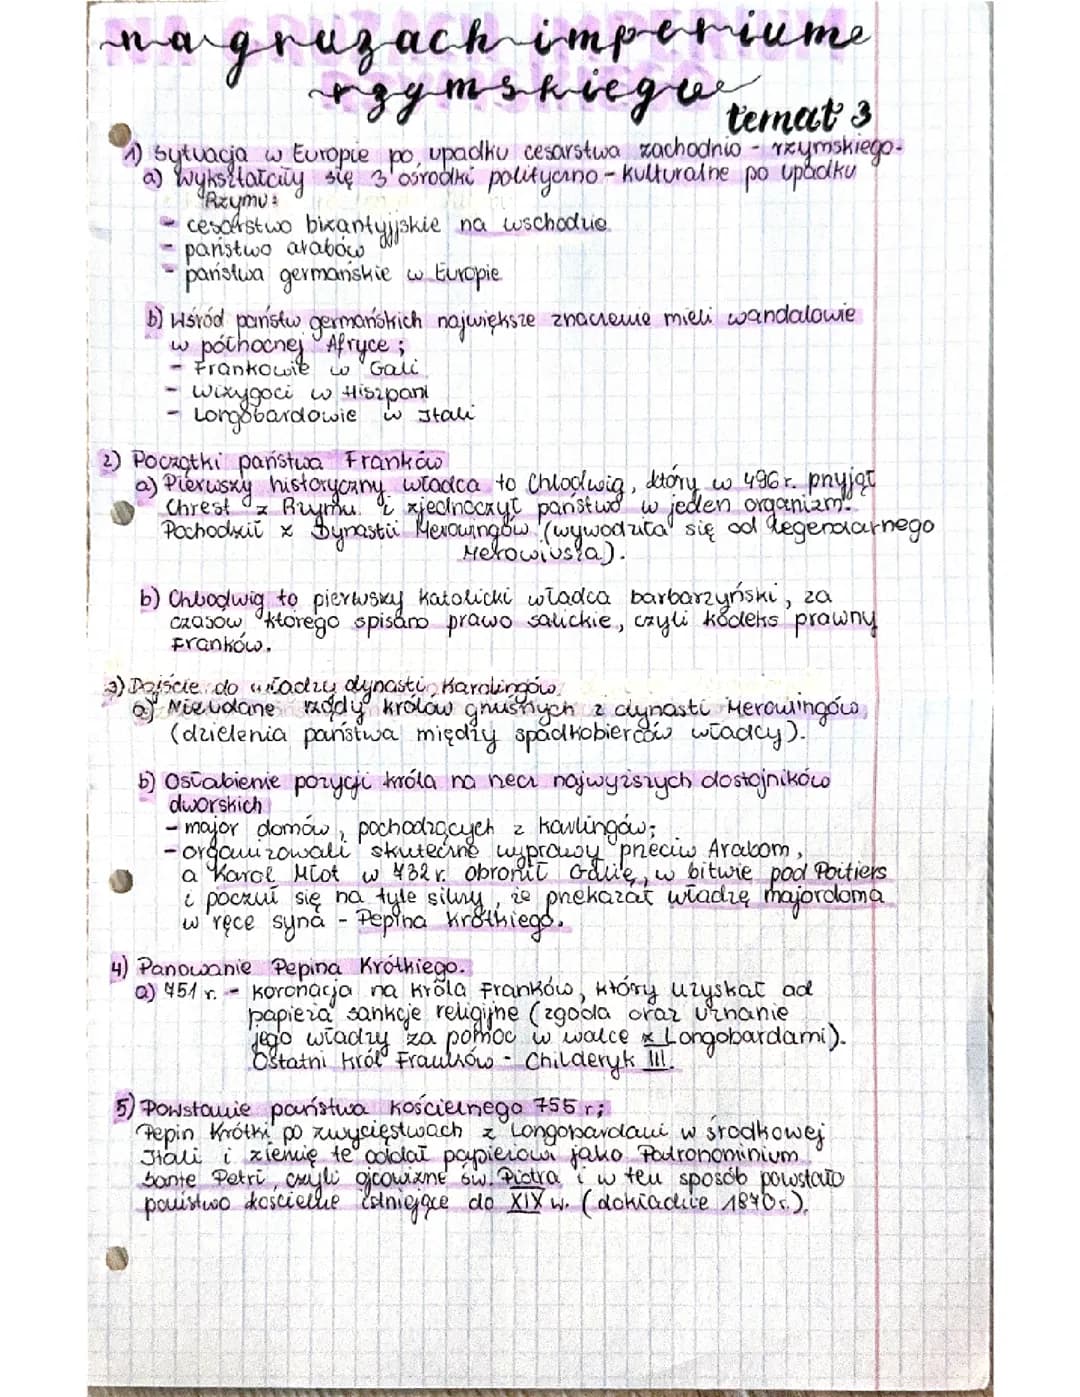 na gruzach imperium
rzymskiego
temat 3
1) Sytuacja w Europie po upadku cesarstwa zachodnio - rzymskiego.
a) Wykształciły się 3 ośrodki polityczno - kulturalne po upadku
Rzymu:
- cesarstwo bizantyjskie na wschodzie
- państwo arabów
- państwa germańskie w Europie
b) Wśród państw germańskich największe znaczenie mieli wandalowie
w północnej Afryce ;
- Frankowie w Gali
- Wizygoci w Hiszpani
- Longobardowie w Itali
2) Początki państwa Franków
a) Pierwszy historyczny władca to Chlodwig, który w 496 r. przyjął
Chrest z Rzymu i zjednoczył państwo w jeden organizm.
Pochodził z Dynastii Merowingów (wywodziła się od legendarnego
Merowiusza).
b) Chlodwig to pierwszy katolicki władca barbarzyński, za
czasów którego spisano prawo salickie, czyli kodeks prawny
Franków.
3) Dojście do władzy dynasti Karolingów.
a) Nieudane rządy królów gnuśnych z dynasti Merowingów
(dzielenia państwa między spadkobierców władcy).
b) Osłabienie pozycji króla na rzecz najwyższych dostojników
dworskich
- major domów, pochodzących z Karlingów;
- organizowali skuteczne wyprawy przeciw Arabom,
a Karol Młot w 732 r. obronił Galię w bitwie pod Poitiers
i poczuł się na tyle silny, że przekazał władzę majordoma
w ręce syna - Pepina Krótkiego.
4) Panowanie Pepina Krótkiego.
a) 751 r. - koronacja na króla Franków, który uzyskał od
papieża sankcje religijne (zgoda oraz uznanie
jego władzy za pomoc w walce z Longobardami).
Ostatni król Franków - Childeryk III.
5) Powstanie państwa kościelnego 755 r;
Pepin Krótki po zwycięstwach z Longobardami w środkowej
Itali i ziemię te oddał papieżowi jako Patronominium
Sante Petri, czyli ojcowiznę św. Piotra i w ten sposób powstało
państwo kościelne istniejące do XIX w. (dokładnie 1870r.).